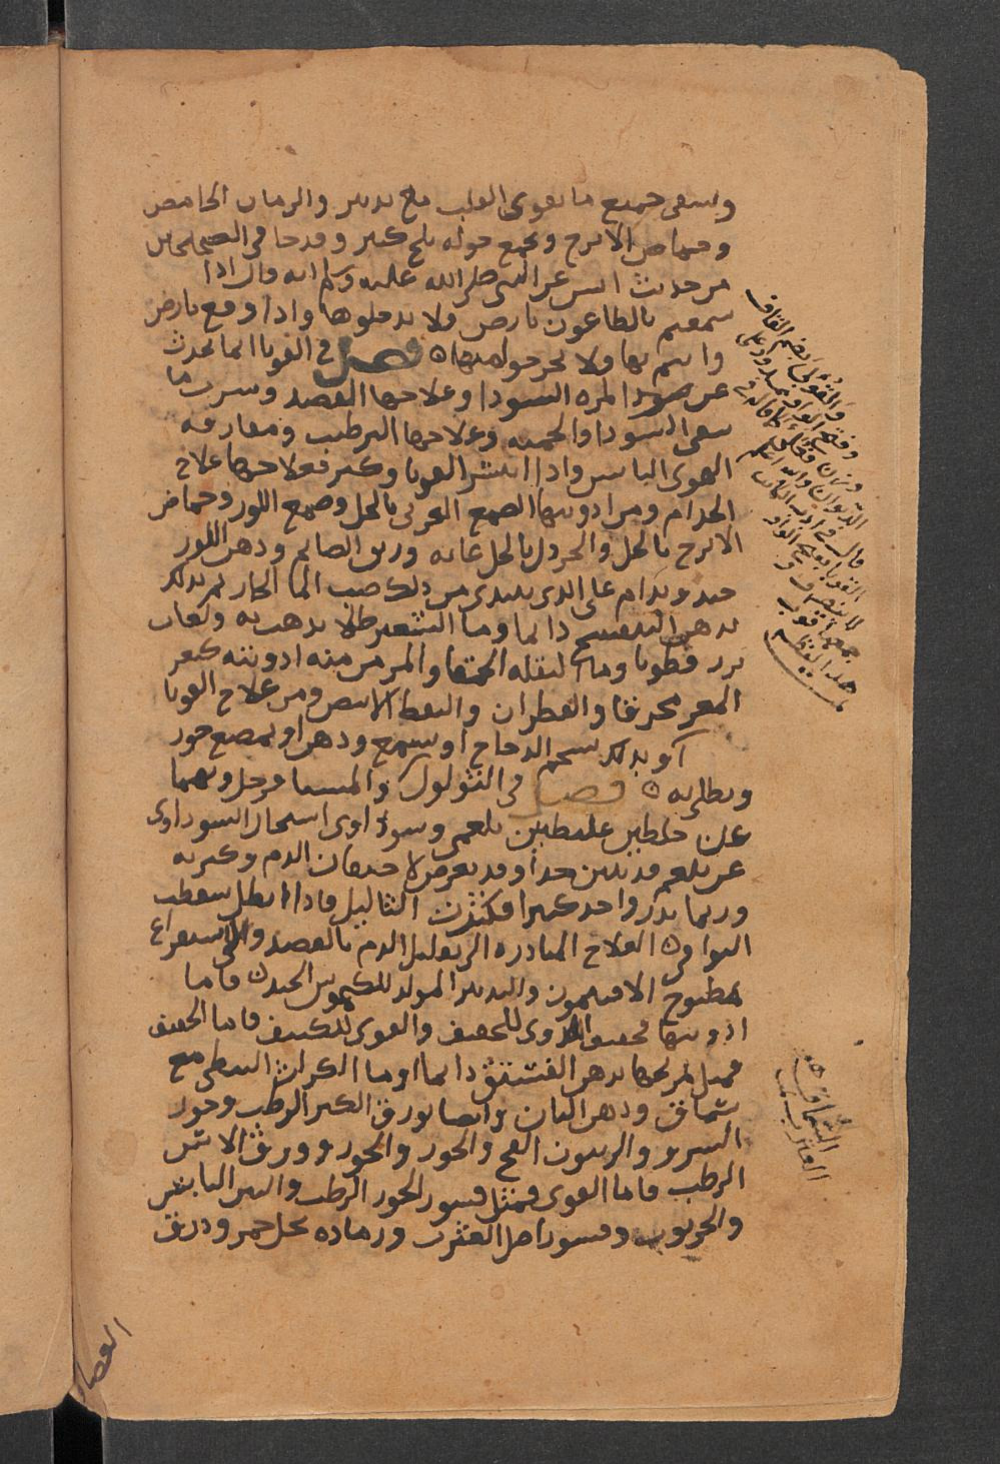 وينبغي جميع ما يقوي القلب مع تدبير والرمان الحامض
وحماض الاترج ويجمع حوله ثلج كثير وقد جا في الصحيحين
من حديث انس عن النبي صلى الله عليه وسلم انه قال اذا
سمعتم بالطاعون بارض فلا تدخلوها واذا وقع بارض
وانتم بها ولا تخرجوا منها فصل في القوبا انما تحدث
عن المره السودا وعلاجها الفصد وشرب ما
ينقي السودا والحميه وعلاجها الترطيب ومفارقه
الهوى اليابس واذا انتشر القوبا وكثر فعلاجها علاج
الجذام ومن ادويتها الصمغ العربي بالخل وصمغ اللوز وحماض
الاترج بالخل والخردل بالخل غايه وريق الصايم ودهن اللوز
جيد ويدام على الذي يبتدى من ذلك صب الما الحار ثم يدلك
بدهن البنفسج دايما وما الشعير طلا يذهب به ولعاب
بزر قطونا وما البقله الحمقا والمزمن منه ادويته كبعر
المعز محرقا والقطران والنفط الابيض ومن علاج القوبا
ان يدلك بشحم الدجاج او بشمع ودهن او يمضغ جوز
ويطلى به فصل في الثولول والمسما
عن خلطين غليظين بلغمي وسوداوى استحال السوداوى
عن بلغم قد يبس جدا وقد يعرض لاحتقان الدم وكثرته
وربما بدر واحد كبيرا فكثرت الثاليل فاذا ابطل سقطت
البواقي العلاج المبادره الى تقليل الدم بالفصد والى استفراغ
بمطبوخ الافتيمون والتدبير المولد للكيموس الجيد فاما
ادويتها للخفيف والقوى للكثيف فاما الخفيف
فمثل تمريخها بدهن الفستق دايما او ما الكراث النبطي مع
سماق ودهن البان وايضا بورق الكبر الرطب وجوز
السرو والزيتون الفج والجوز وورق الاس
الرطب فاما القوى فمثل قشور الجوز الرطب والتين اليابس
والخرنوب وقشور اصل الغرب ورماده بخل خمر وذرق
والقوبى بضم القاف
وفتح الواو ممدود على
قال في ادب الكاتب
القوبا بفتح الواو
جمعها قوب
هذا لفظه
السماق هو